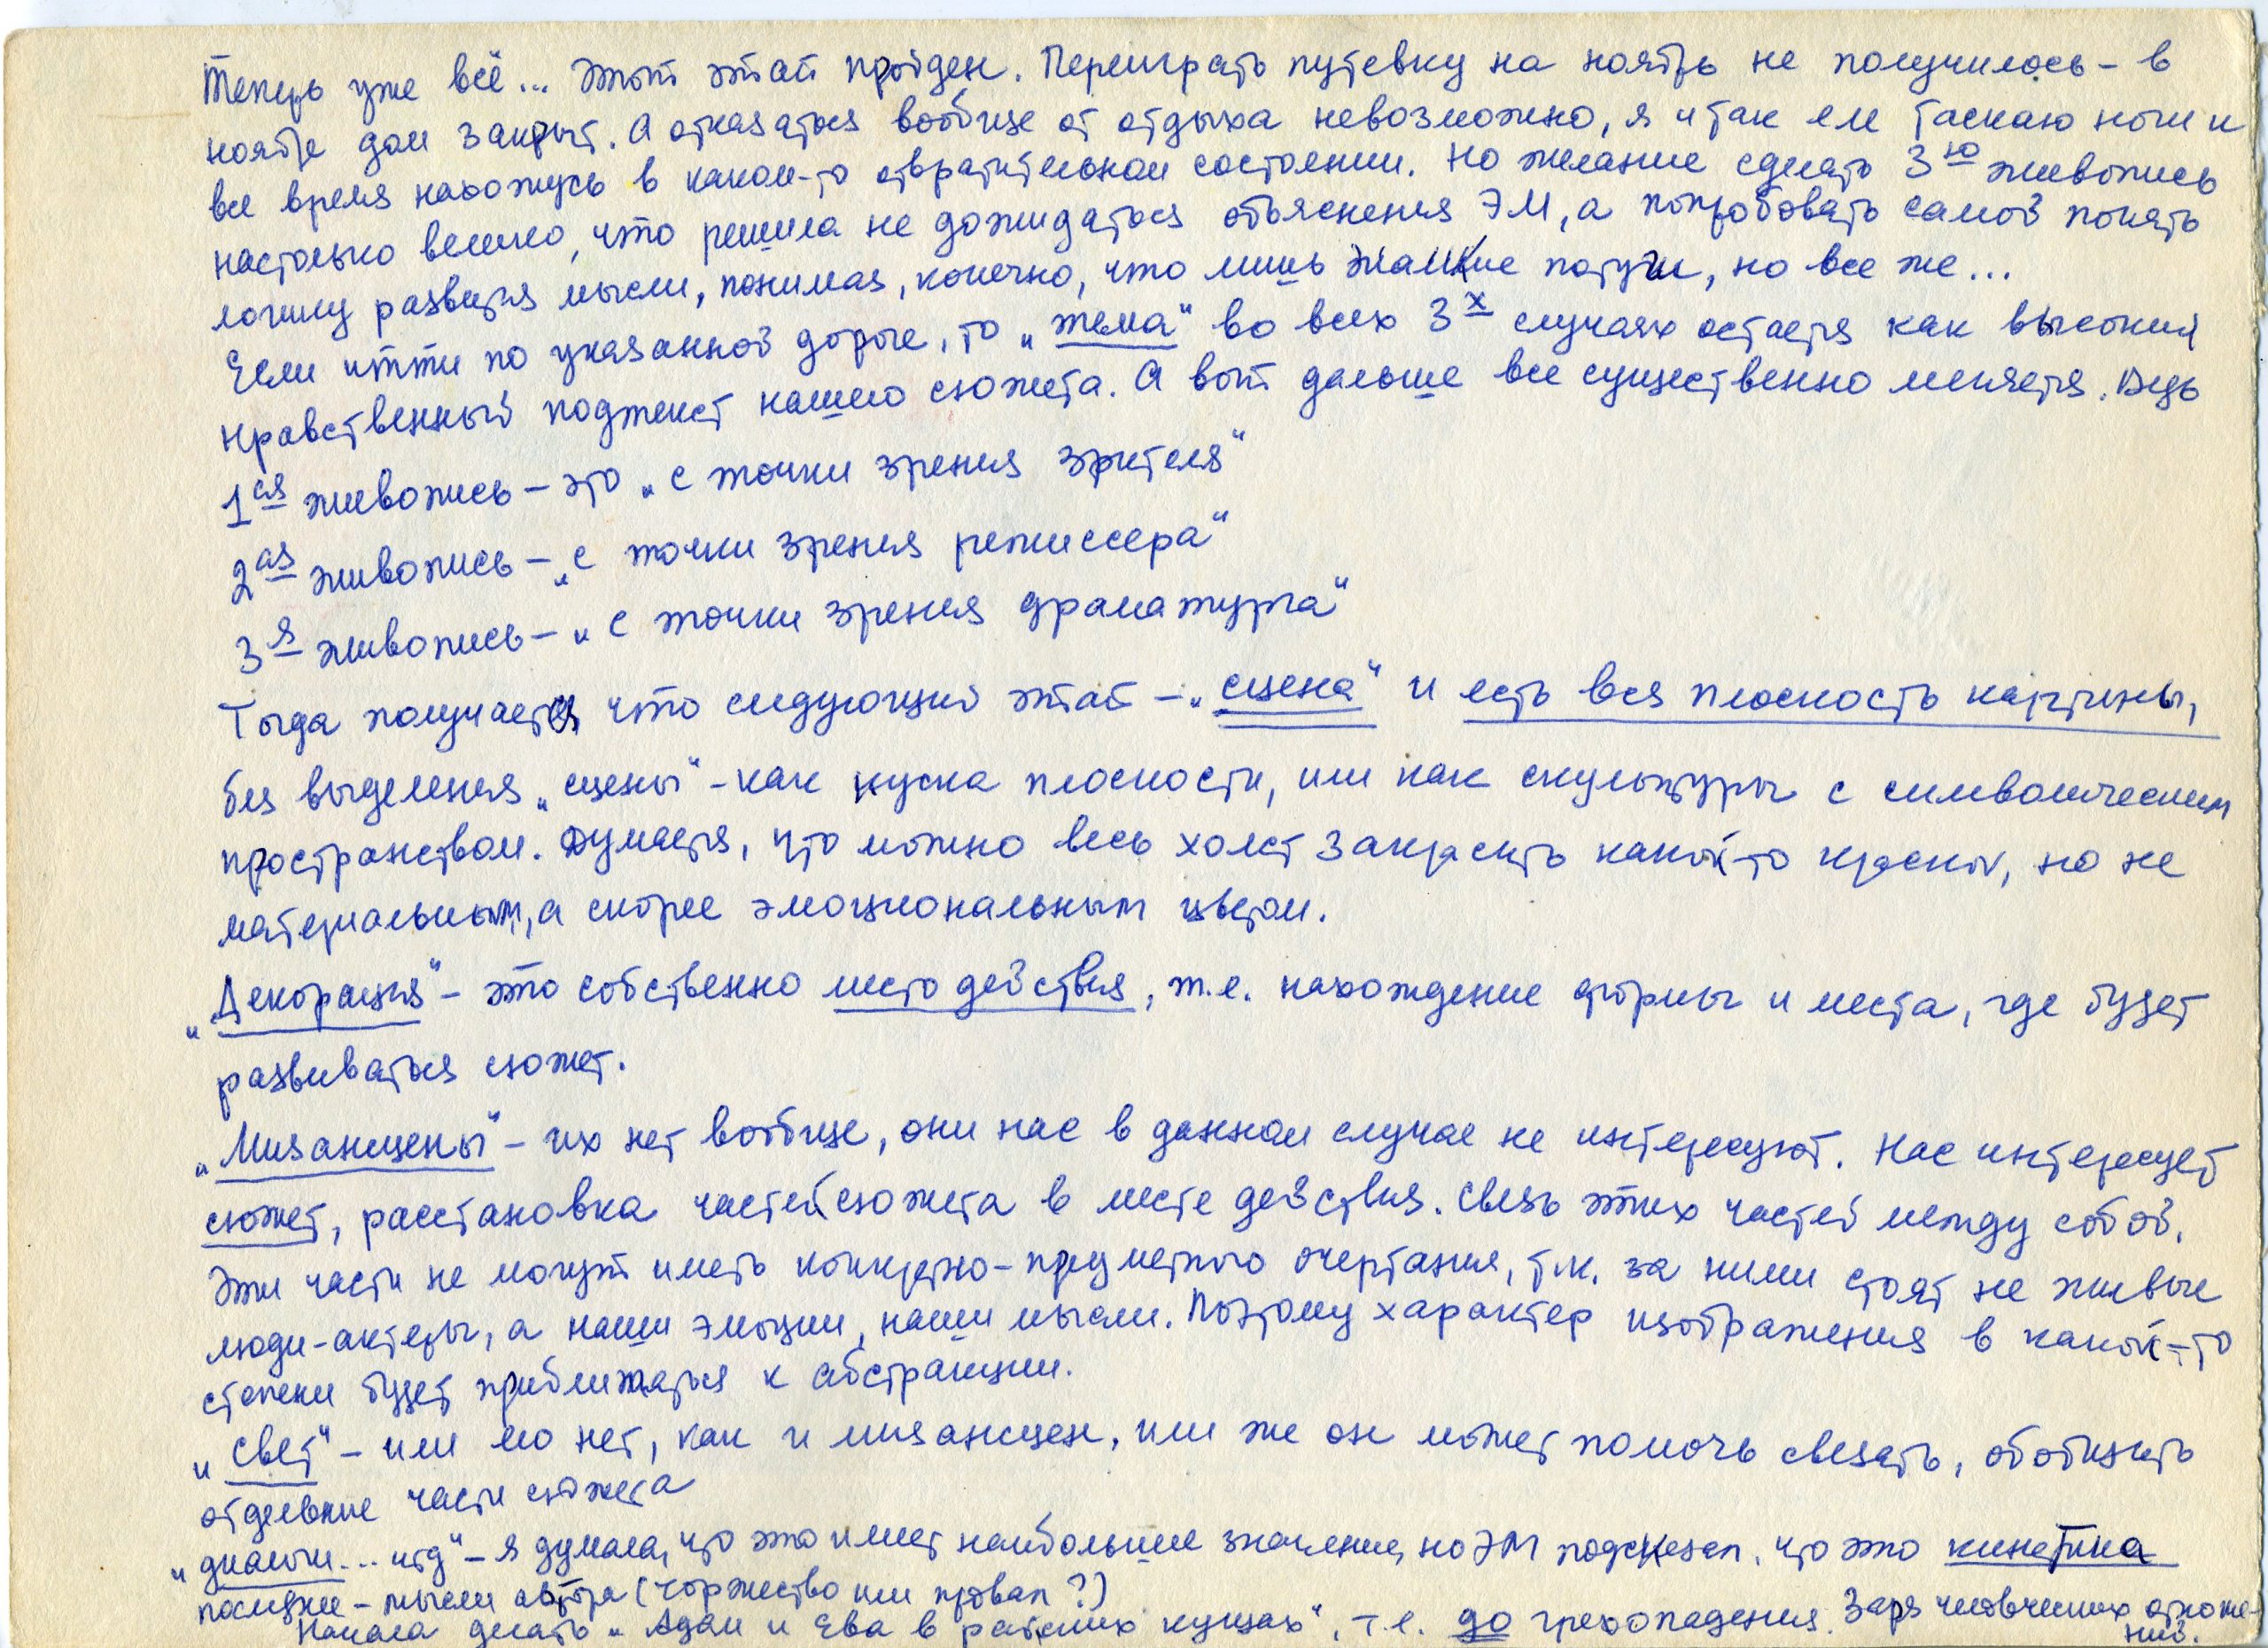 Теперь уже всё... Этот этап пройден. Переиграть путевку на ноябрь не получилось – в
ноябре дом закрыт. А отказаться вообще от отдыха невозможно, я и так еле таскаю ноги и
все время нахожусь в каком-то отвратительном состоянии. Но желание сделать 3ю живопись
настолько велико, что решила не дожидаться объяснения ЭМ, а попробовать самой понять
логику развития мысли, понимая, конечно, что лишь жалкие потуги, но все же...
Если итти по указанной дороге, то „тема“ во всех 3х случаях остается как высокий
нравственный подтекст нашего сюжета. А вот дальше все существенно меняется. Ведь
1ая живопись – это „с точки зрения зрителя“
2ая живопись – „с точки зрения режиссера“
3я живопись – „с точки зрения драматурга“
Тогда получается что следующий этап – „сцена“ и есть вся плоскость картины,
без выделения „сцены“ – как куска плоскости, или как скульптуры с символическим
пространством. Думается, что можно весь холст закрасить какой-то краской, но не
материальным, а скорее эмоциональным цветом.
„Декорация“ – это собственно место действия, т.е. нахождение формы и места, где будет
развиваться сюжет.
„Мизансцены“ – их нет вообще, они нас в данном случае не интересуют. Нас интересует
сюжет, расстановка частей сюжета в месте действия. Связь этих частей между собой.
Эти части не могут иметь конкретно-предметного очертания, т.к. за ними стоят не живые
люди-актеры, а наши эмоции, наши мысли. Поэтому характер изображения в какой-то
степени будет приближаться к абстракции.
„Свет“ – или его нет, как и мизансцен, или же он может помочь связать, обобщить
отдельные части сюжета
„диалоги... итд“ – я думала, что это имеет наибольшее значение, но ЭМ подсказал, что это кинетика
последнее – мысли автора (торжество или провал ?)
Начала делать „Адам и Ева в райских кущах“, т.е. до грехопадения. Заря человеческих отноше-
ний.